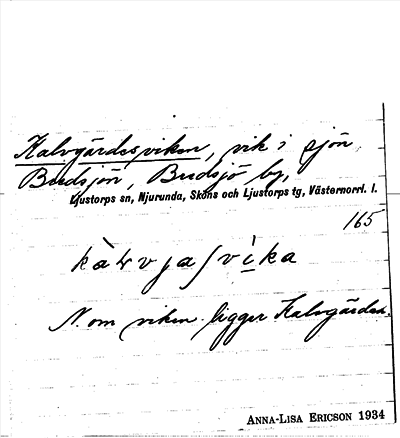 Kalvgärdesviken, vik i sjön
Budsjön, Budsjö by,
Ljustorps sn, Njurunda, Sköns och Ljustorps tg, Västernorrl. l.
165
N. om viken ligger Kalvgärdet.
ANNA-LISA ERICSON 1934